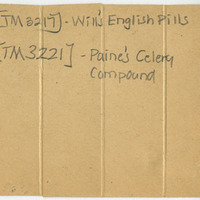 [TM3217] - Will's English Pills
[TM3221] - Paine's Celery
Compound